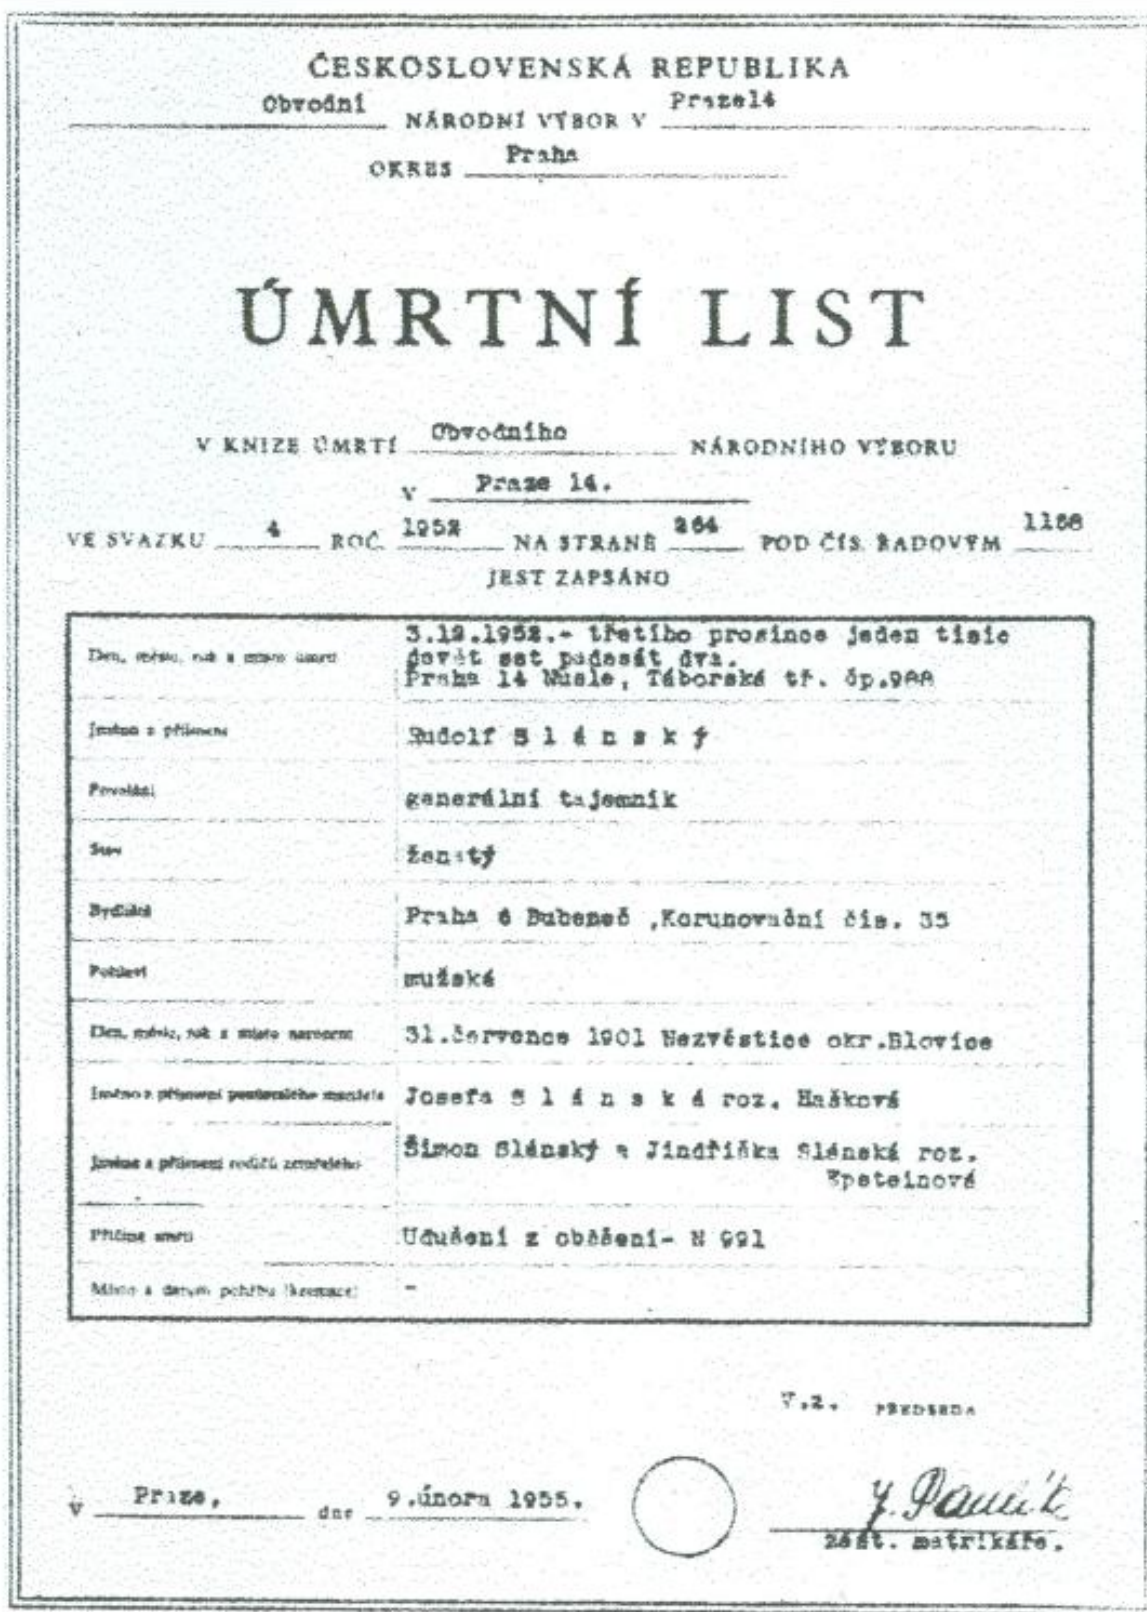 ČESKOSLOVENSKÁ REPUBLIKA
Obvodní NÁRODNÍ VÝBOR V Praze14
OKRES Praha
ÚMRTNÍ LIST
V KNIZE ÚMRTÍ Obvodního NÁRODNÍHO VÝBORU
V Praze 14.
VE SVAZKU 4 ROČ. 1952 NA STRANĚ 264 POD ČÍS. ŘADOVÝM 1188
JEST ZAPSÁNO
Den, měsíc, rok a místo úmrtí 3.12.1952.- třetího prosince jeden tisíc
devět set padesát dva.
Praha 14 Nusle, Táborská tř. čp.988
Jméno a příjmení Rudolf S l á n s k ý
Povolání generální tajemník
Stav ženatý
Bydliště Praha 6 Bubeneč ,Korunovační čís. 35
Pohlaví mužské
Den, měsíc, rok a místo narození 31.července 1901 Nezvěstice okr.Blovice
Jméno a příjmení pozůstalého manžela Josefa S l á n s k á roz. Hašková
Jméno a příjmení rodičů zemřelého Šimon Slánský a Jindřiška Slánská roz.
Epsteinová
Příčina smrti Udušení z oběšení- N 991
Místo a datum pohřbu (kremace) -
V.z. PŘEDSEDA
V Praze, dne 9.února 1955.
zást. matrikáře.